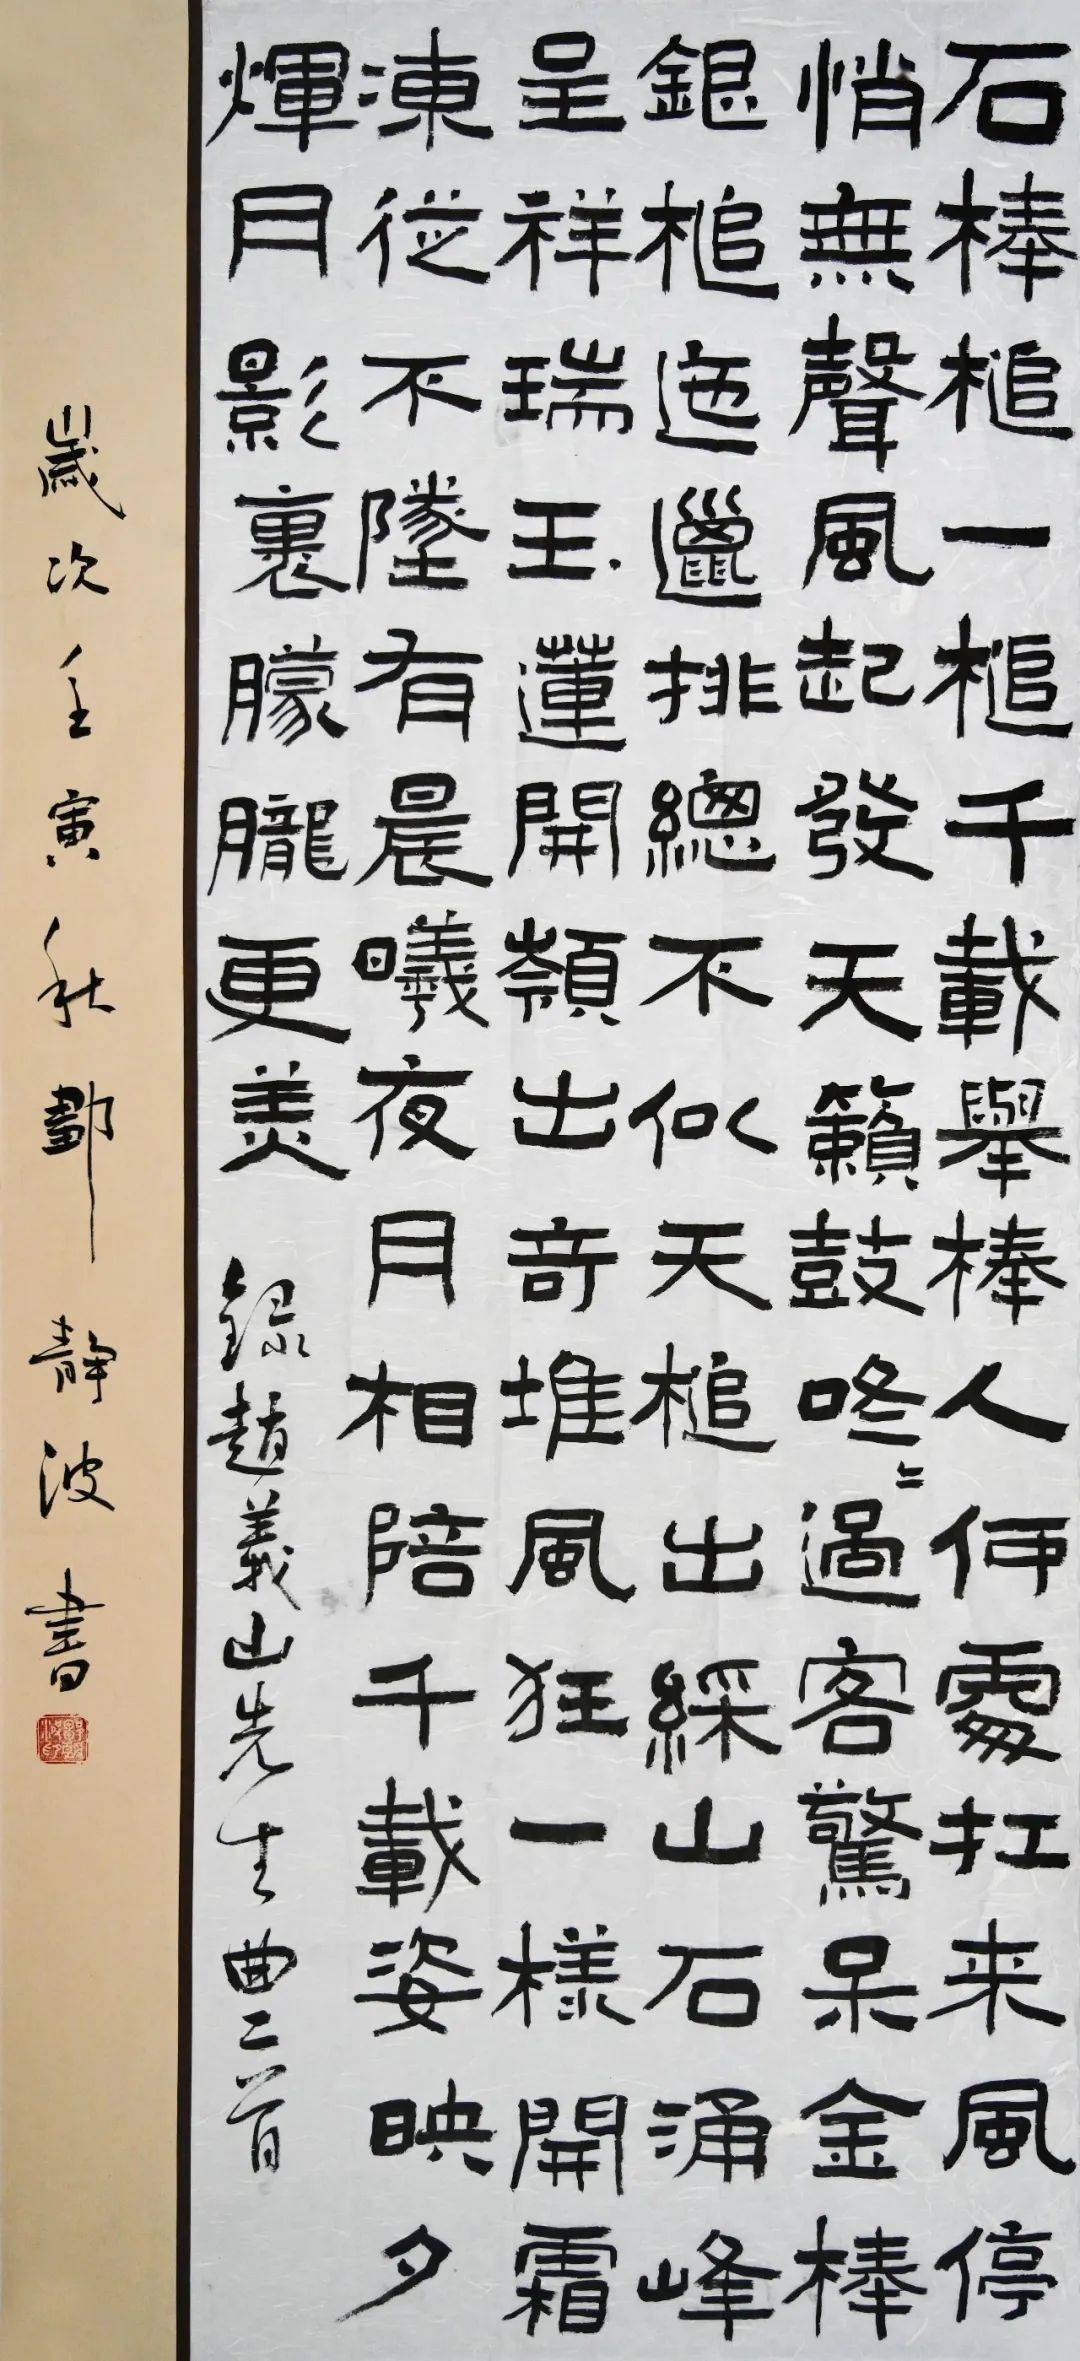 石棒槌一槌千載舉棒人何處扛来風停
悄無聲風起發天籟鼓咚〻過客驚呆金棒
銀槌迤邐排總不似天槌出綵山石涌峰
呈祥瑞玉蓮開嶺出奇堆風狂一樣開霜
凍從不墜有晨曦夜月相陪千載姿映夕
煇月影裏朦朧更美 錄趙義山先生曲二首
歲次壬寅秋 静波書